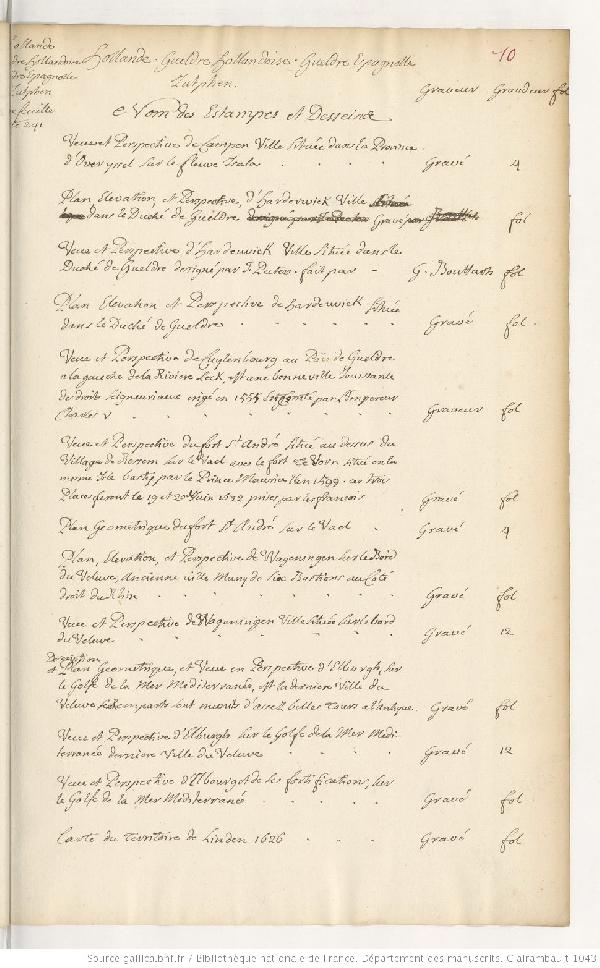 ollande
dre hollandoise
dre Espagnolle
Zutphen
feuille
Hollande. Gueldre hollandoise. Gueldre Espagnolle
Zutphen.
10
Graveur Grandeur fol
Nom des Estampes et Desseins
Veue et Perspective de Campen Ville Située dans la Province
d'Overyssel sur le fleuve Isala Gravé 4
Plan Elevation, et Perspective, d'Harderwick Ville
dans le Duché de Gueldre Gravé par fol
Veue et Perspective d'Harderwick Ville Située dans le
Duché de Gueldre designé par fait par G. Bouttats fol
Plan Elevation et Perspective de Harderwick Située
dans le Duché de Gueldre Gravé fol.
Veue et Perspective de Cuylenbourg au Païs de Gueldre
a la gauche de la Riviere Leck, est une bonne ville Jouissante
de droits Seigneuriaux erigé en 1555 par l'Empereur
Charles V Graveur fol
Veue et Perspective du fort St André Situé au dessus du
Village de Rossem sur le Vael avec le fort de Vorn Situé en la
mesme Isle bastis par le Prince Maurice l'en 1599.
Places furent le 19 et 20 Juin prises par les françois Gravé fol
Plan Geometrique du fort St André sur le Vael Gravé 4
Plan, Elevation, et Perspective de Wageningen sur le Bord
du Veluve, Ancienne ville Muny de Six Bastions au Costé
droit du Rhin Gravé fol
Veue et Perspective de Wageningen Ville Située sur le bord
du Veluve Gravé 12
Description
et Plan Geometrique, et Veue en Perspective d'Elburgh, sur
le Golfe de la Mer Mediterranée, est la derniere Ville du
Veluve remparts sont munis d'assez belles Tours a l'antique. Gravé fol
Veue et Perspective d'Elburgh sur le Golfe de la Mer Medi-
terranée derniere Ville du Veluve Gravé 12
Veue et Perspective d'Elbourg et de ses fortifications, sur
le Golfe de la Mer Mediterranée Gravé fol
Carte du Territoire de Linden 1626 Gravé fol
Source gallica.bnf.fr / Bibliothèque nationale de France. Département des manuscrits. Clairambault 1043